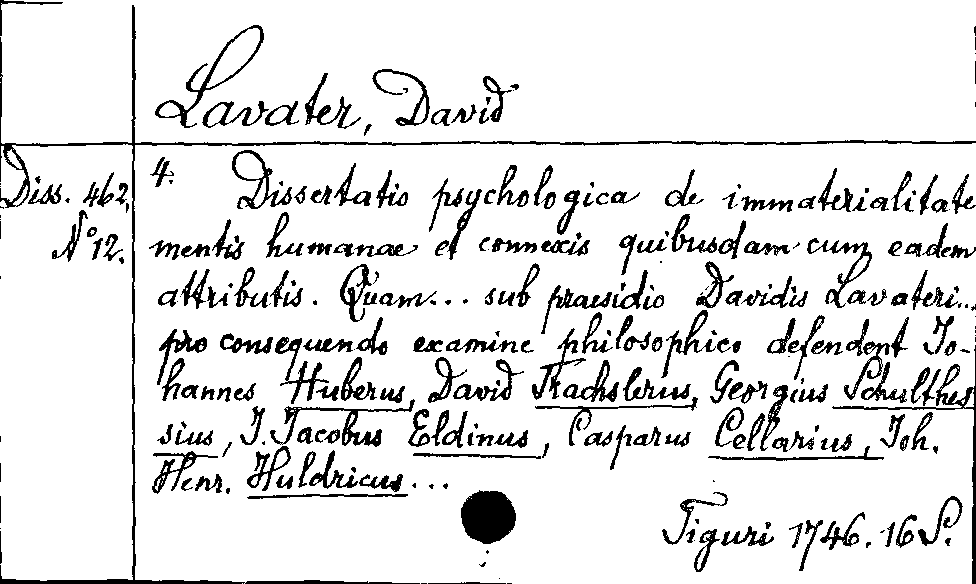 Lavater, David
Diss. 462,
No 12.
4. Dissertatio psychologica de immaterialitate
mentis humanae et connexis quibusdam cum eadem
attributis. Quam... sub praesidio Davidis Lavateri...
pro consequendo examine philosophico defendent Jo-
hannes Huberus, David Trachslerus, Georgius Schulthes
sius, J. Jacobus Eldinus, Casparus Cellarius, Joh.
Henr. Huldricus...
Tiguri 1746. 16 S.